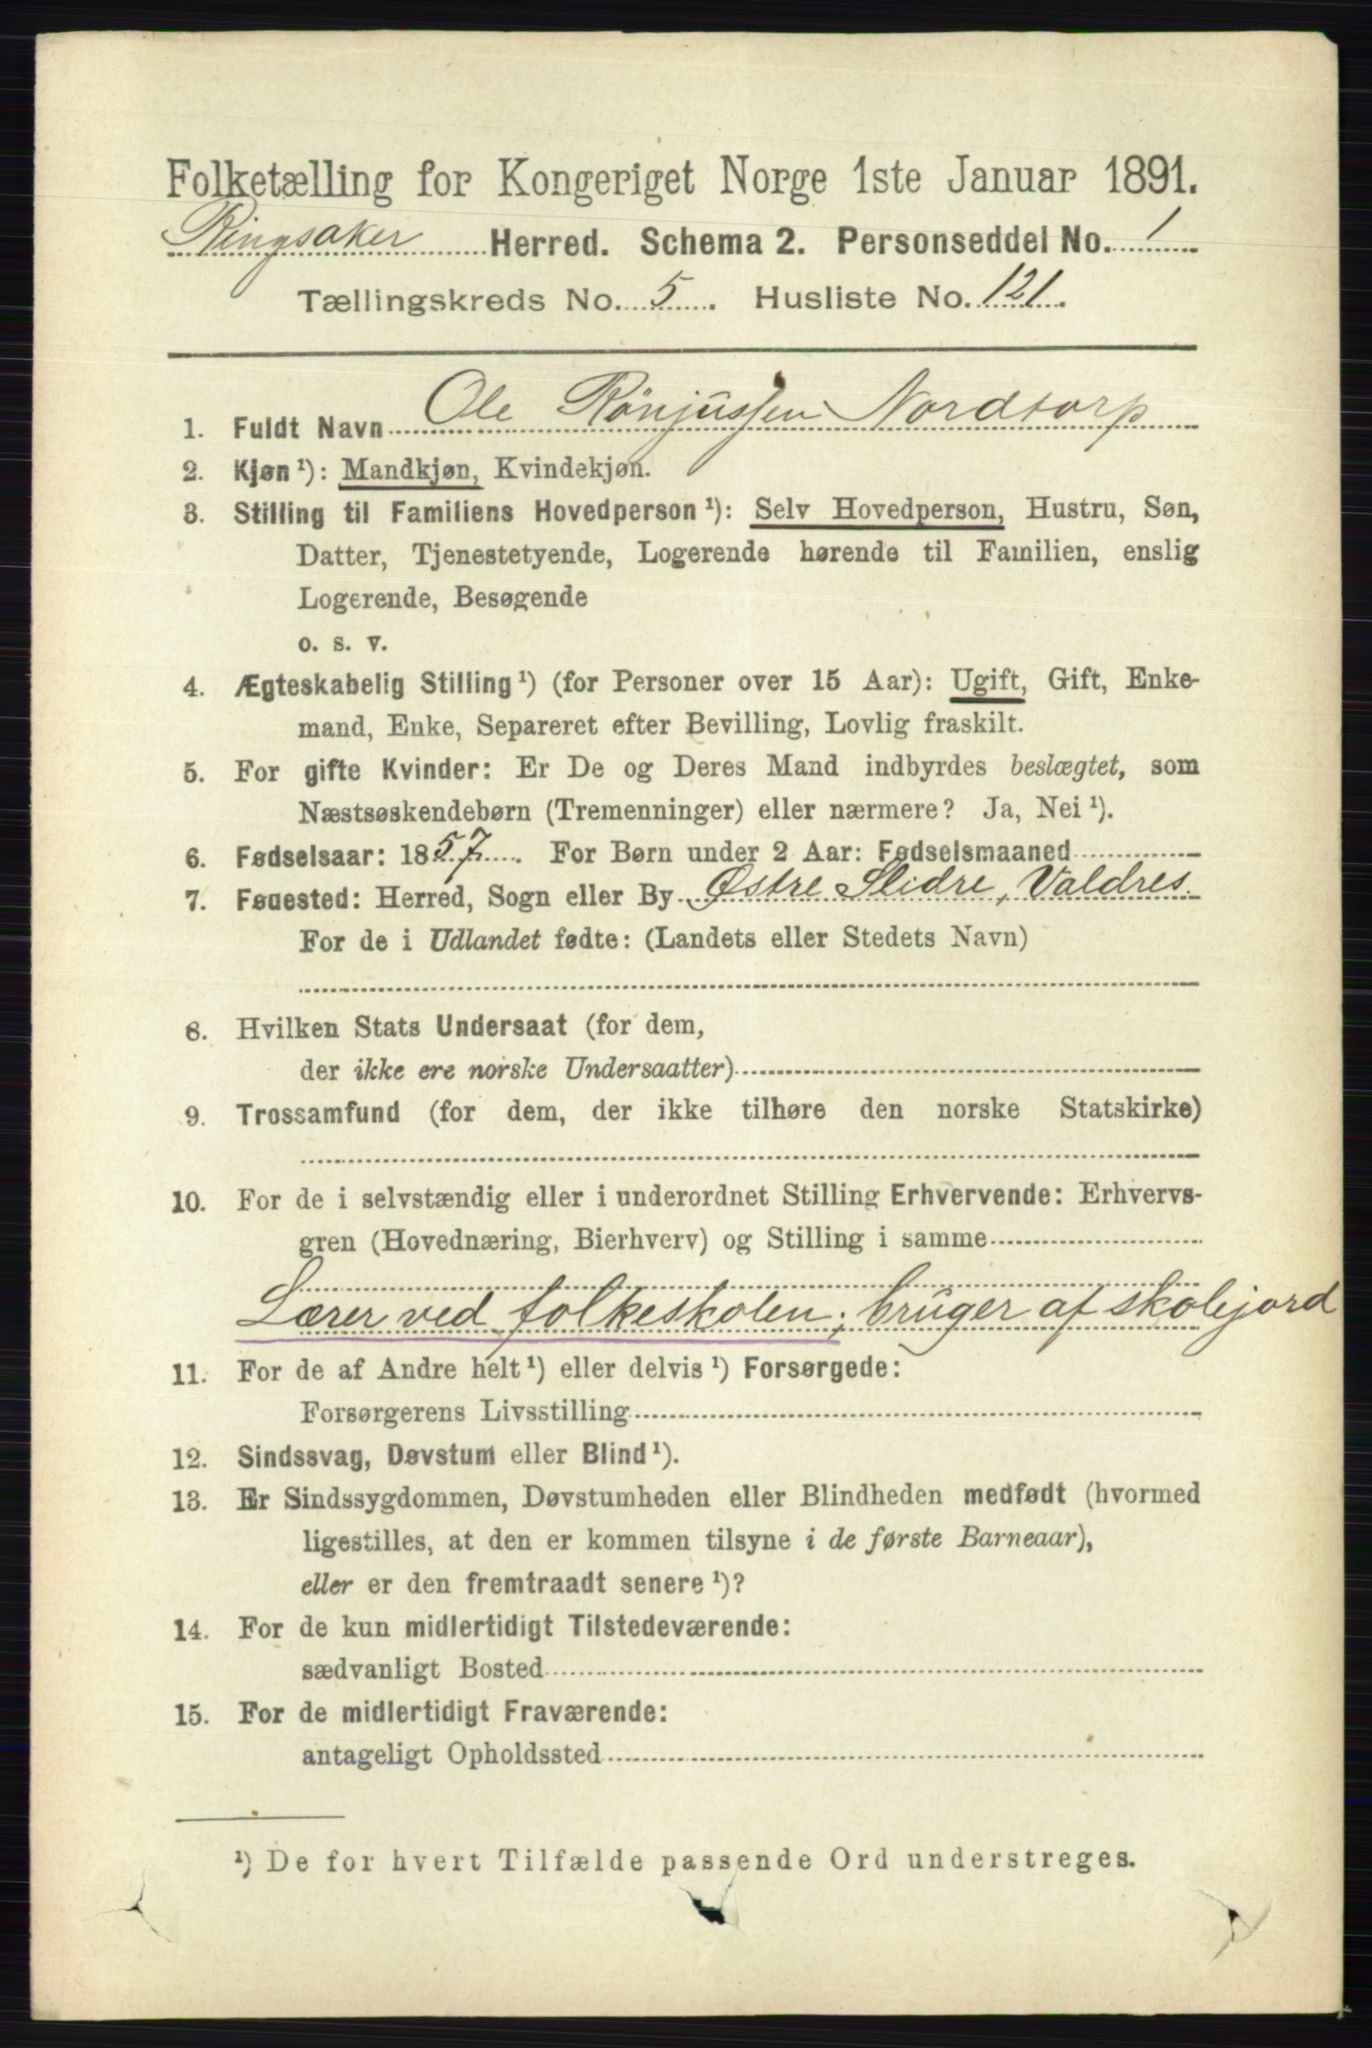 Folketælling for Kongeriget Norge 1ste Januar 1891.
Ringsaker Herred. Schema 2. Personseddel No. 1
Tællingskreds No. 5. Husliste No. 121.
1. Fuldt Navn Ole Rönjussen Nordtorp
2. Kjøn ¹): Mandkjøn, Kvindekjøn.
3. Stilling til Familiens Hovedperson ¹): Selv Hovedperson, Hustru, Søn,
Datter, Tjenestetyende, Logerende hørende til Familien, enslig
Logerende, Besøgende
o. s. v.
4. Ægteskabelig Stilling ¹) (for Personer over 15 Aar): Ugift, Gift, Enke-
mand, Enke, Separeret efter Bevilling, Lovlig fraskilt.
5. For gifte Kvinder: Er De og Deres Mand indbyrdes beslægtet, som
Næstsøskendebørn (Tremenninger) eller nærmere? Ja, Nei ¹).
6. Fødselsaar: 1857. For Børn under 2 Aar: Fødselsmaaned
7. Føuested: Herred, Sogn eller By Østre Slidre, Valdres.
For de i Udlandet fødte: (Landets eller Stedets Navn)
8. Hvilken Stats Undersaat (for dem,
der ikke ere norske Undersaatter)
9. Trossamfund (for dem, der ikke tilhøre den norske Statskirke)
10. For de i selvstændig eller i underordnet Stilling Erhvervende: Erhvervs-
gren (Hovednæring, Bierhverv) og Stilling i samme
Lærer ved folkeskolen; bruger af skolejord
11. For de af Andre helt ¹) eller delvis ¹) Forsørgede:
Forsørgerens Livsstilling
12. Sindssvag, Døvstum eller Blind ¹).
13. Er Sindssygdommen, Døvstumheden eller Blindheden medfødt (hvormed
ligestilles, at den er kommen tilsyne i de første Barneaar),
eller er den fremtraadt senere ¹)?
14. For de kun midlertidigt Tilstedeværende:
sædvanligt Bosted
15. For de midlertidigt Fraværende:
antageligt Opholdssted
¹) De for hvert Tilfælde passende Ord understreges.